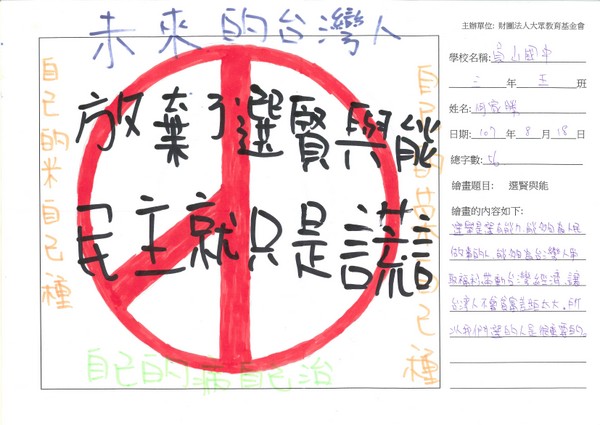 未來的台灣人
自己的米自己種
放棄了選賢與能
民主就只是謊言
自己的菜自己種
自己的病自己治
主辦單位: 財團法人大眾教育基金會
學校名稱: 國中
三 年 五 班
姓名:
日期: 107 年 8 月 18 日
總字數: 56
繪畫題目: 選賢與能
繪畫的內容如下:
選舉是選有能力,能夠為人民
的人,能夠為台灣人爭
取福利,帶動台灣經濟,讓
台灣人不會貧富差距太大,所
以我們所選的人是很重要的。